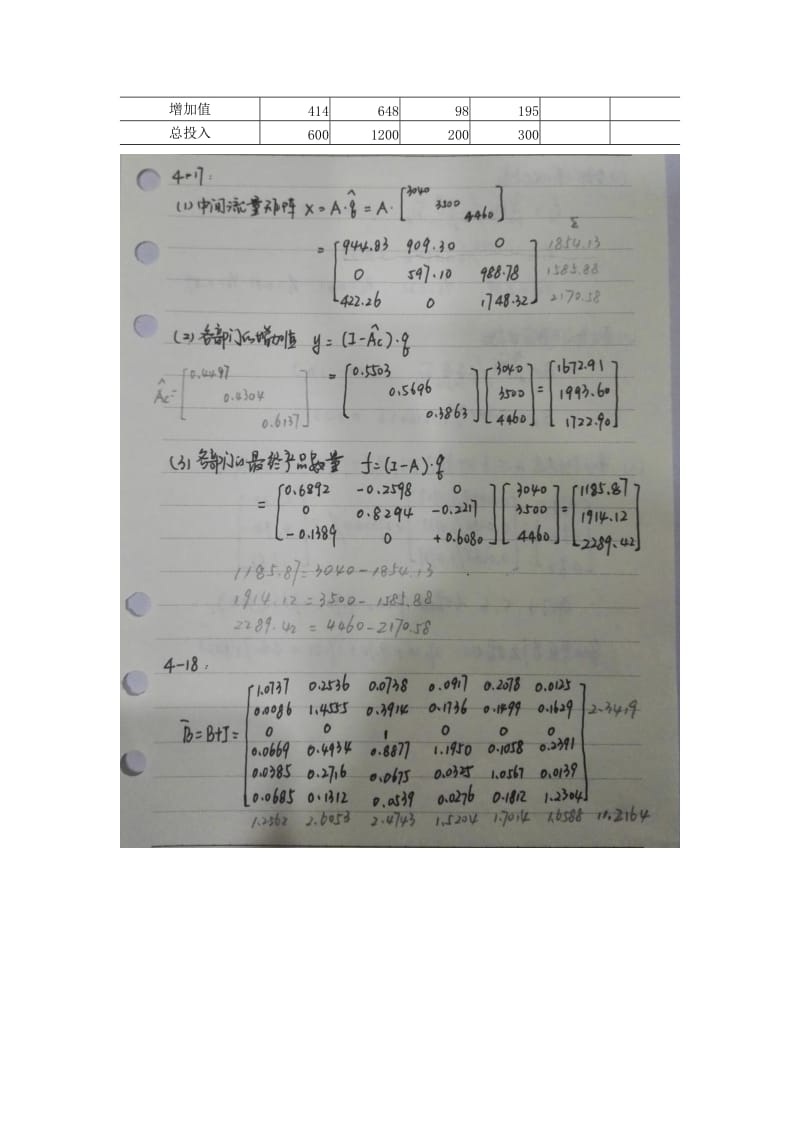 增加值 414 648 98 195
总投入 600 1200 200 300
4-17:
(1)中间流量矩阵 X = A·q̂ = A· [3040
3500
4460]
Σ
= [944.83 909.30 0 1854.13
0 597.10 988.78 1585.88
422.26 0 1748.32] 2170.58
(2)各部门的增加值 y = (I-Âc)·q
Âc = [0.4497
0.4304
0.6137]
= [0.5503
0.5696
0.3863] [3040
3500
4460] = [1672.91
1993.60
1722.90]
(3)各部门的最终产品数量 f = (I-A)·q
= [0.6892 -0.2598 0
0 0.8294 -0.2217
-0.1389 0 +0.6080] [3040
3500
4460] = [1185.87
1914.12
2289.42]
1185.87 = 3040 - 1854.13
1914.12 = 3500 - 1585.88
2289.42 = 4460 - 2170.58
4-18:
B̄ = B+I =
[1.0737 0.2536 0.0738 0.0917 0.2078 0.0125
0.0086 1.4555 0.3914 0.1736 0.1499 0.1629 2.3419
0 0 1 0 0 0
0.0669 0.4934 0.8877 1.1950 0.1058 0.2391
0.0385 0.2716 0.0675 0.0325 1.0567 0.0139
0.0685 0.1312 0.0539 0.0276 0.1812 1.2304]
1.2562 2.6053 2.4743 1.5204 1.7014 1.6588 11.2164